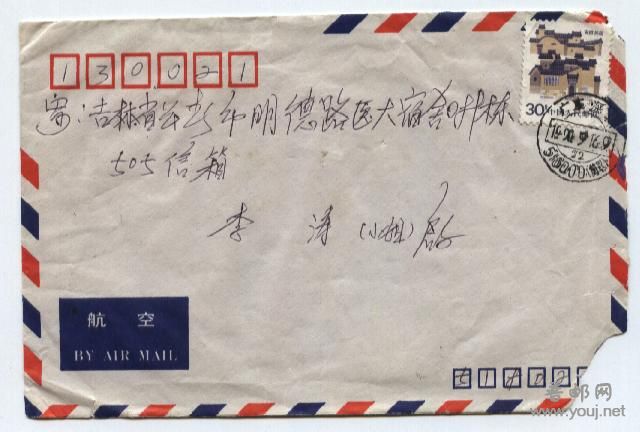 130021
寄:吉林省长春市明德路医大宿舍4栋
505信箱
李涛(小姐)启
30分 中国人民邮政
航空
BY AIR MAIL
www.youj.net